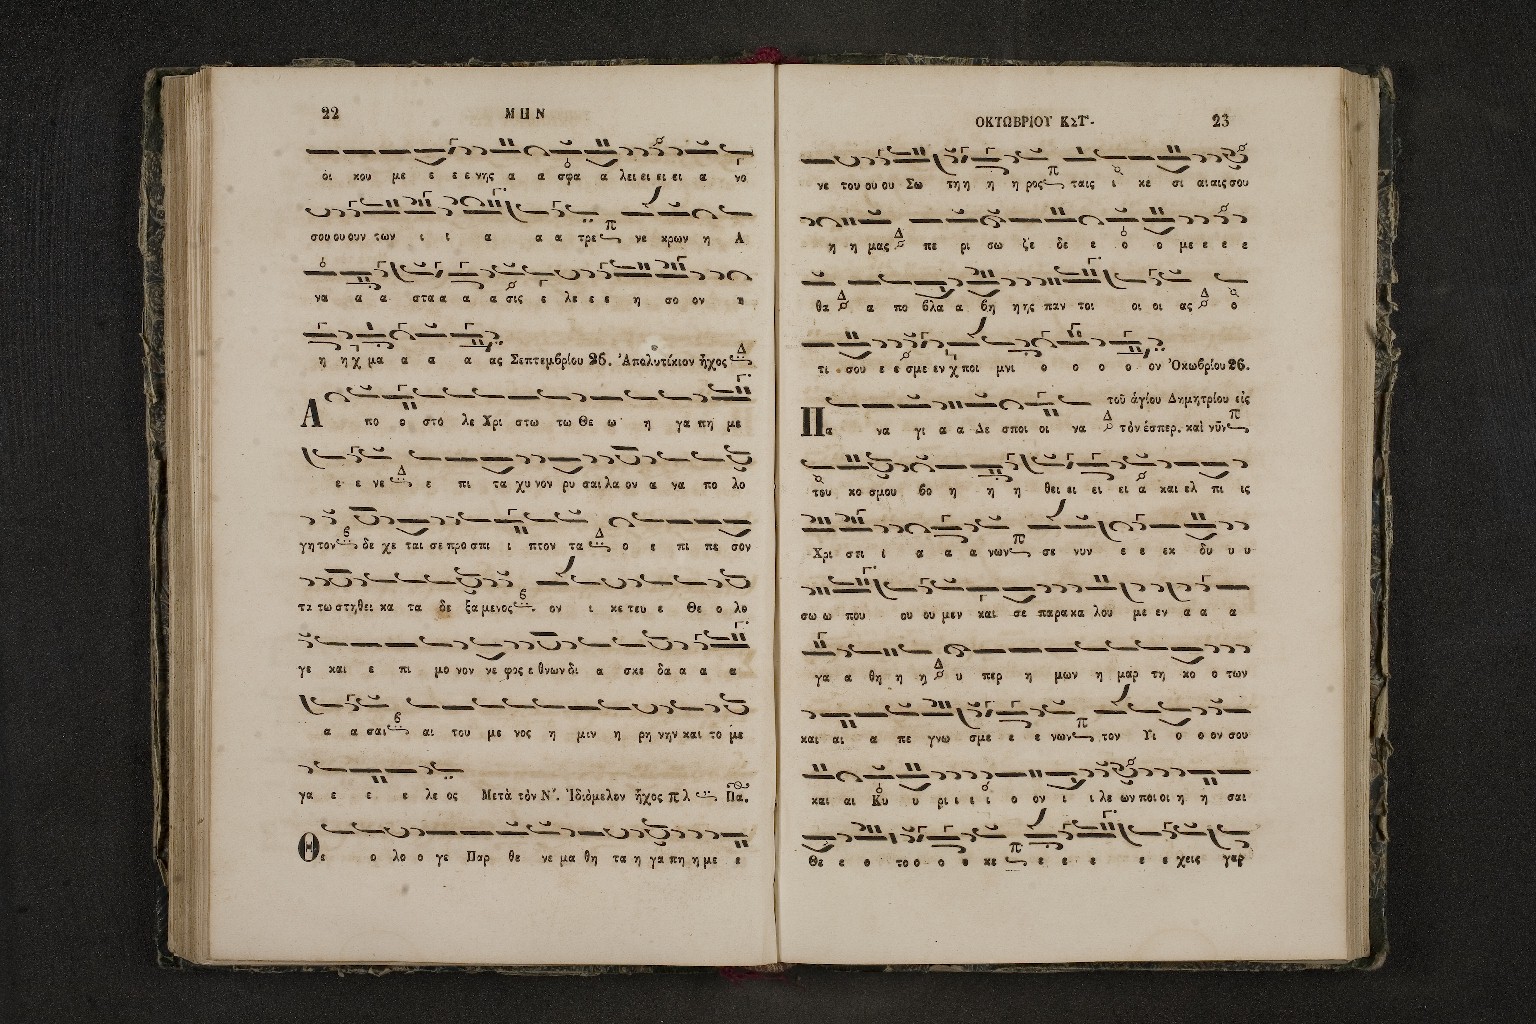 22
ΜΗΝ
οί κου με ε ε ε νης α α σφα α λει ει ει ει α νο
σου ου ουν των ι ι α α α τρε νε κρων η Α
να α α στα α α α σις ε λε ε ε η σο ον η
η η χ μα α α α ας Σεπτεμβρίου 26. Ἀπολυτίκιον ἦχος Δ
Α πο ο στο λε Χρι στω τω Θε ω η γα πη με
ε ε νε Δ ε πι τα χυ νον ρυ σαι λα ον α να πο λο
γη τον δε χε ται σε προσ πι ι πτον τα Δ ο ε πι πε σον
τα τω στηθει κα τα δε ξα μενος ον ι κε τευ ε Θε ο λο
γε και ε πι μο νον νε φος ε θνων δι α σκε δα α α α
α α σαι αι του με νος η μιν η ρη νην και το με
γα ε ε ε λε ος Μετὰ τὸν Ν΄. Ἰδιόμελον ἦχος πλ Πα.
Θε ο λο ο γε Παρ θε νε μα θη τα η γα πη η με ε
ΟΚΤΩΒΡΙΟΥ ΚΣΤ΄.
23
νε του ου ου Σω τη η η η ρος ταις ι κε σι αι αις σου
η η μας Δ πε ρι σω ζε δε ε ο ο με ε ε ε
θα Δ α πο βλα α βη η ης παν τοι οι οι ας Δ ο
τι σου ε ε σμε εν χ ποι μνι ο ο ο ο ον Ὀκωβρίου 26.
Πα να γι α α Δε σποι οι να Δ τοῦ ἁγίου Δημητρίου εἰς
τὸν ἑσπερ. καὶ νῦν
του κο σμου βο η η η θει ει ει ει α και ελ πι ις
Χρι στι ι α α α νων σε νυν ε ε εκ δυ υ υ
σω ω που ου ου μεν και σε παρα κα λου με εν α α α
γα α θη η η Δ υ περ η μων η μαρ τη κο ο των
και αι α πε γνω σμε ε ε νων τον Υι ο ο ον σου
και αι Κυ υ ρι ι ι ι ο ον ι ι λε ων ποι οι η η σαι
Θε ε ο το ο ο ο κε ε ε ε ε ε χεις γαρ